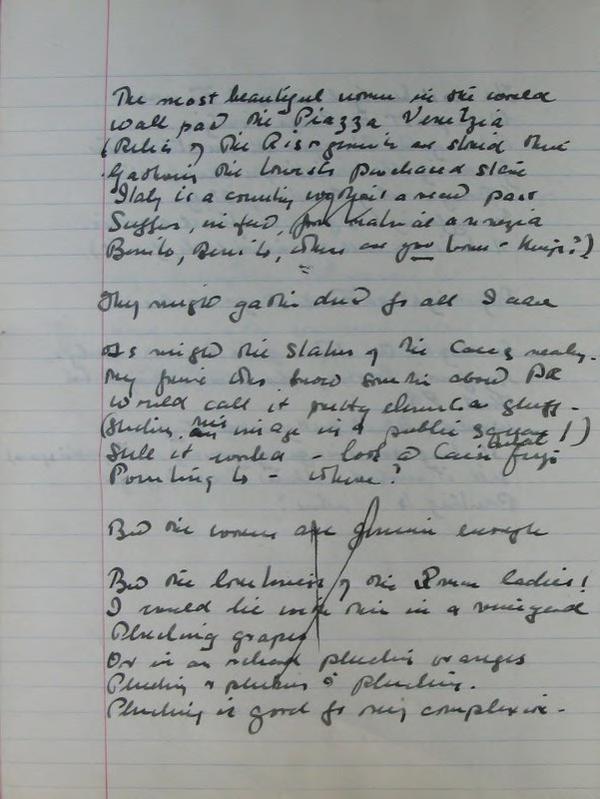 The most beautiful women in the world
Walk past the Piazza Venetzia
(Relics of the Risorgimento are stored there
Gathering the towards purchased
Italy is a country without a real past
Suffers, in fact, from amnesia
Benito, Benito, where are you now - )
They might gather dust for all I care
As might the statue of the Caesar nearby.
My friend who knows something about PR
Would call it pretty elementary stuff -
(Sticking his image in a public square!)
Still it worked - look at Caesar that
Pointing to - where?
But the women are genuine enough
But the loveliness of the Roman ladies!
I would lie with them in a vineyard
Plucking grapes
Or in an orchard plucking oranges
Plucking & plucking & plucking.
Plucking is good for my complexion -